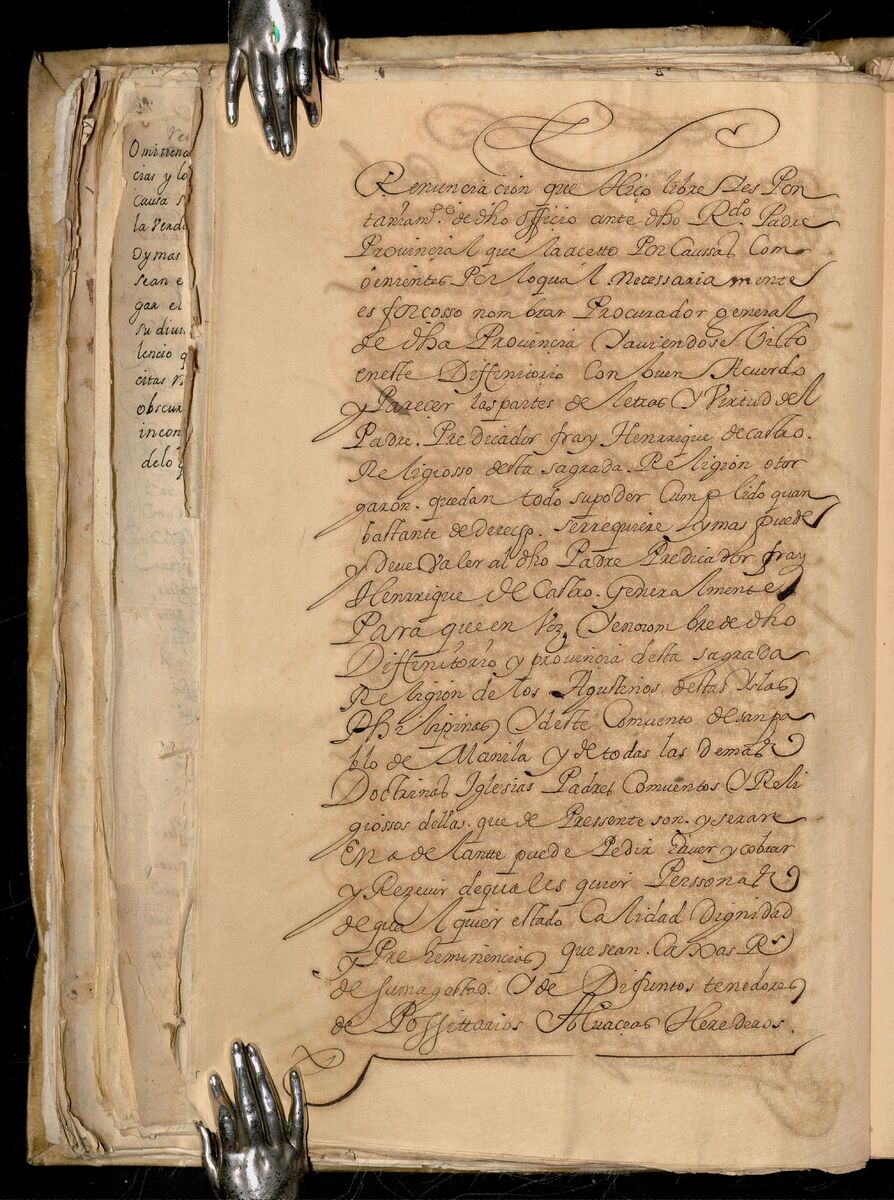 Omitiena
cias y lo
Causa s
la Verda
Dymas
sean e
gar el
su diui
lencio q
citas
obscur
incon
delo
Renunciacion que Hiço libre Y es Pon
taniam.te de dho officio ante dho R.do Padre
Provincial que la acetto Por Caussas Com
benientes Por lo qual. Necessariamente
es forcosso nombrar Procurador general
de dha Provincia Y auiendose Visto
eneste Diffenitorio Con buen Acuerdo
y Parecer las partes de letras Y Virtud del
Padre. Predicador fray Henrrique de castro.
Religiosso desta sagrada. Religion otor
garon. quedan todo supoder Cumplido quan
bastante de derecho. serrequiere Y mas puede
y Deue Valer al dho Padre Predicador fray
Henrrique de Castro. Generalmente
Para que en Voz Y en nombre de dho
Diffenitorio y provincia desta sagrada
Religion de los Agustinos destas Yslas
Philipinas Y deste Comuento de san pa
blo de Manila y de todas las demas
Doctrinas Iglesias Padres Comuentos Y Reli
giossos dellas. que de Pressente son. y seran
En adelantte puede Pedir Auer y cobrar
y Rezeuir de quales quier Perssonas
de qual quier estado Calidad Dignidad
y Preheminencias que sean. Caxas R.s
de sumagestad. Y de Difuntos tenedores
de Possittarios Albaçeas Herederos.